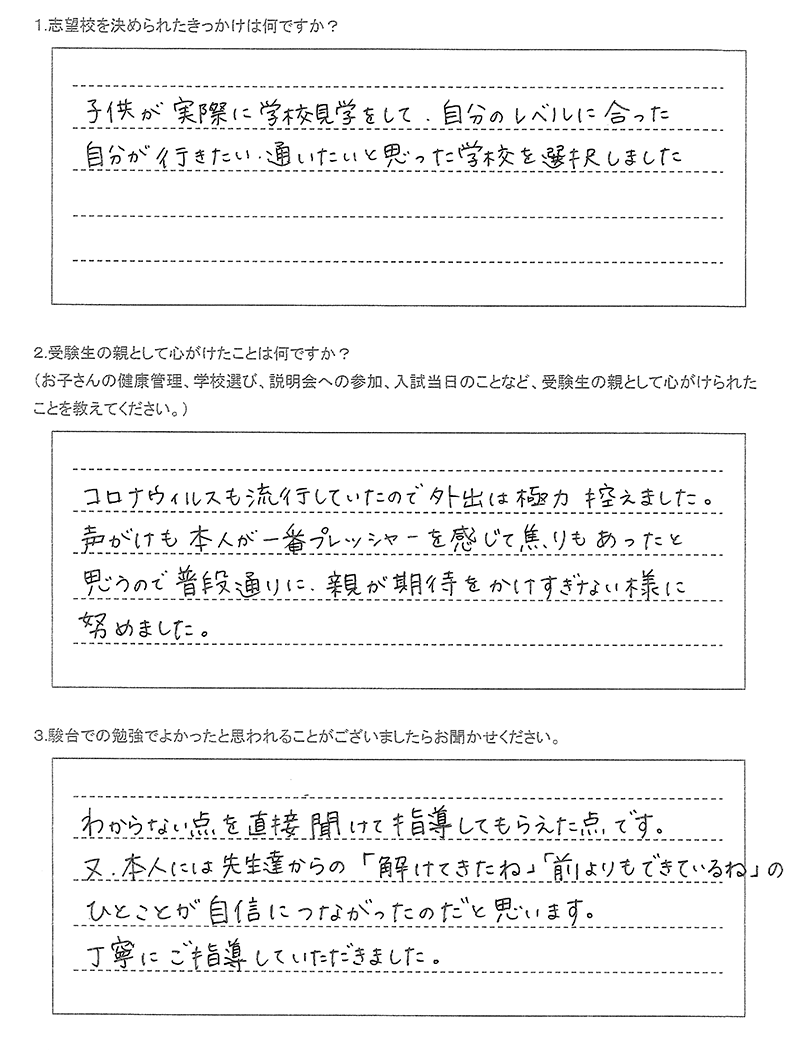 1.志望校を決められたきっかけは何ですか？
子供が実際に学校見学をして、自分のレベルに合った
自分が行きたい、通いたいと思った学校を選択しました
2.受験生の親として心がけたことは何ですか？
（お子さんの健康管理、学校選び、説明会への参加、入試当日のことなど、受験生の親として心がけられた
ことを教えてください。）
コロナウィルスも流行していたので外出は極力控えました。
声がけも本人が一番プレッシャーを感じて焦りもあったと
思うので普段通りに、親が期待をかけすぎない様に
努めました。
3.駿台での勉強でよかったと思われることがございましたらお聞かせください。
わからない点を直接聞けて指導してもらえた点です。
又、本人には先生達からの「解けてきたね」「前よりもできているね」の
ひとことが自信につながったのだと思います。
丁寧にご指導していただきました。